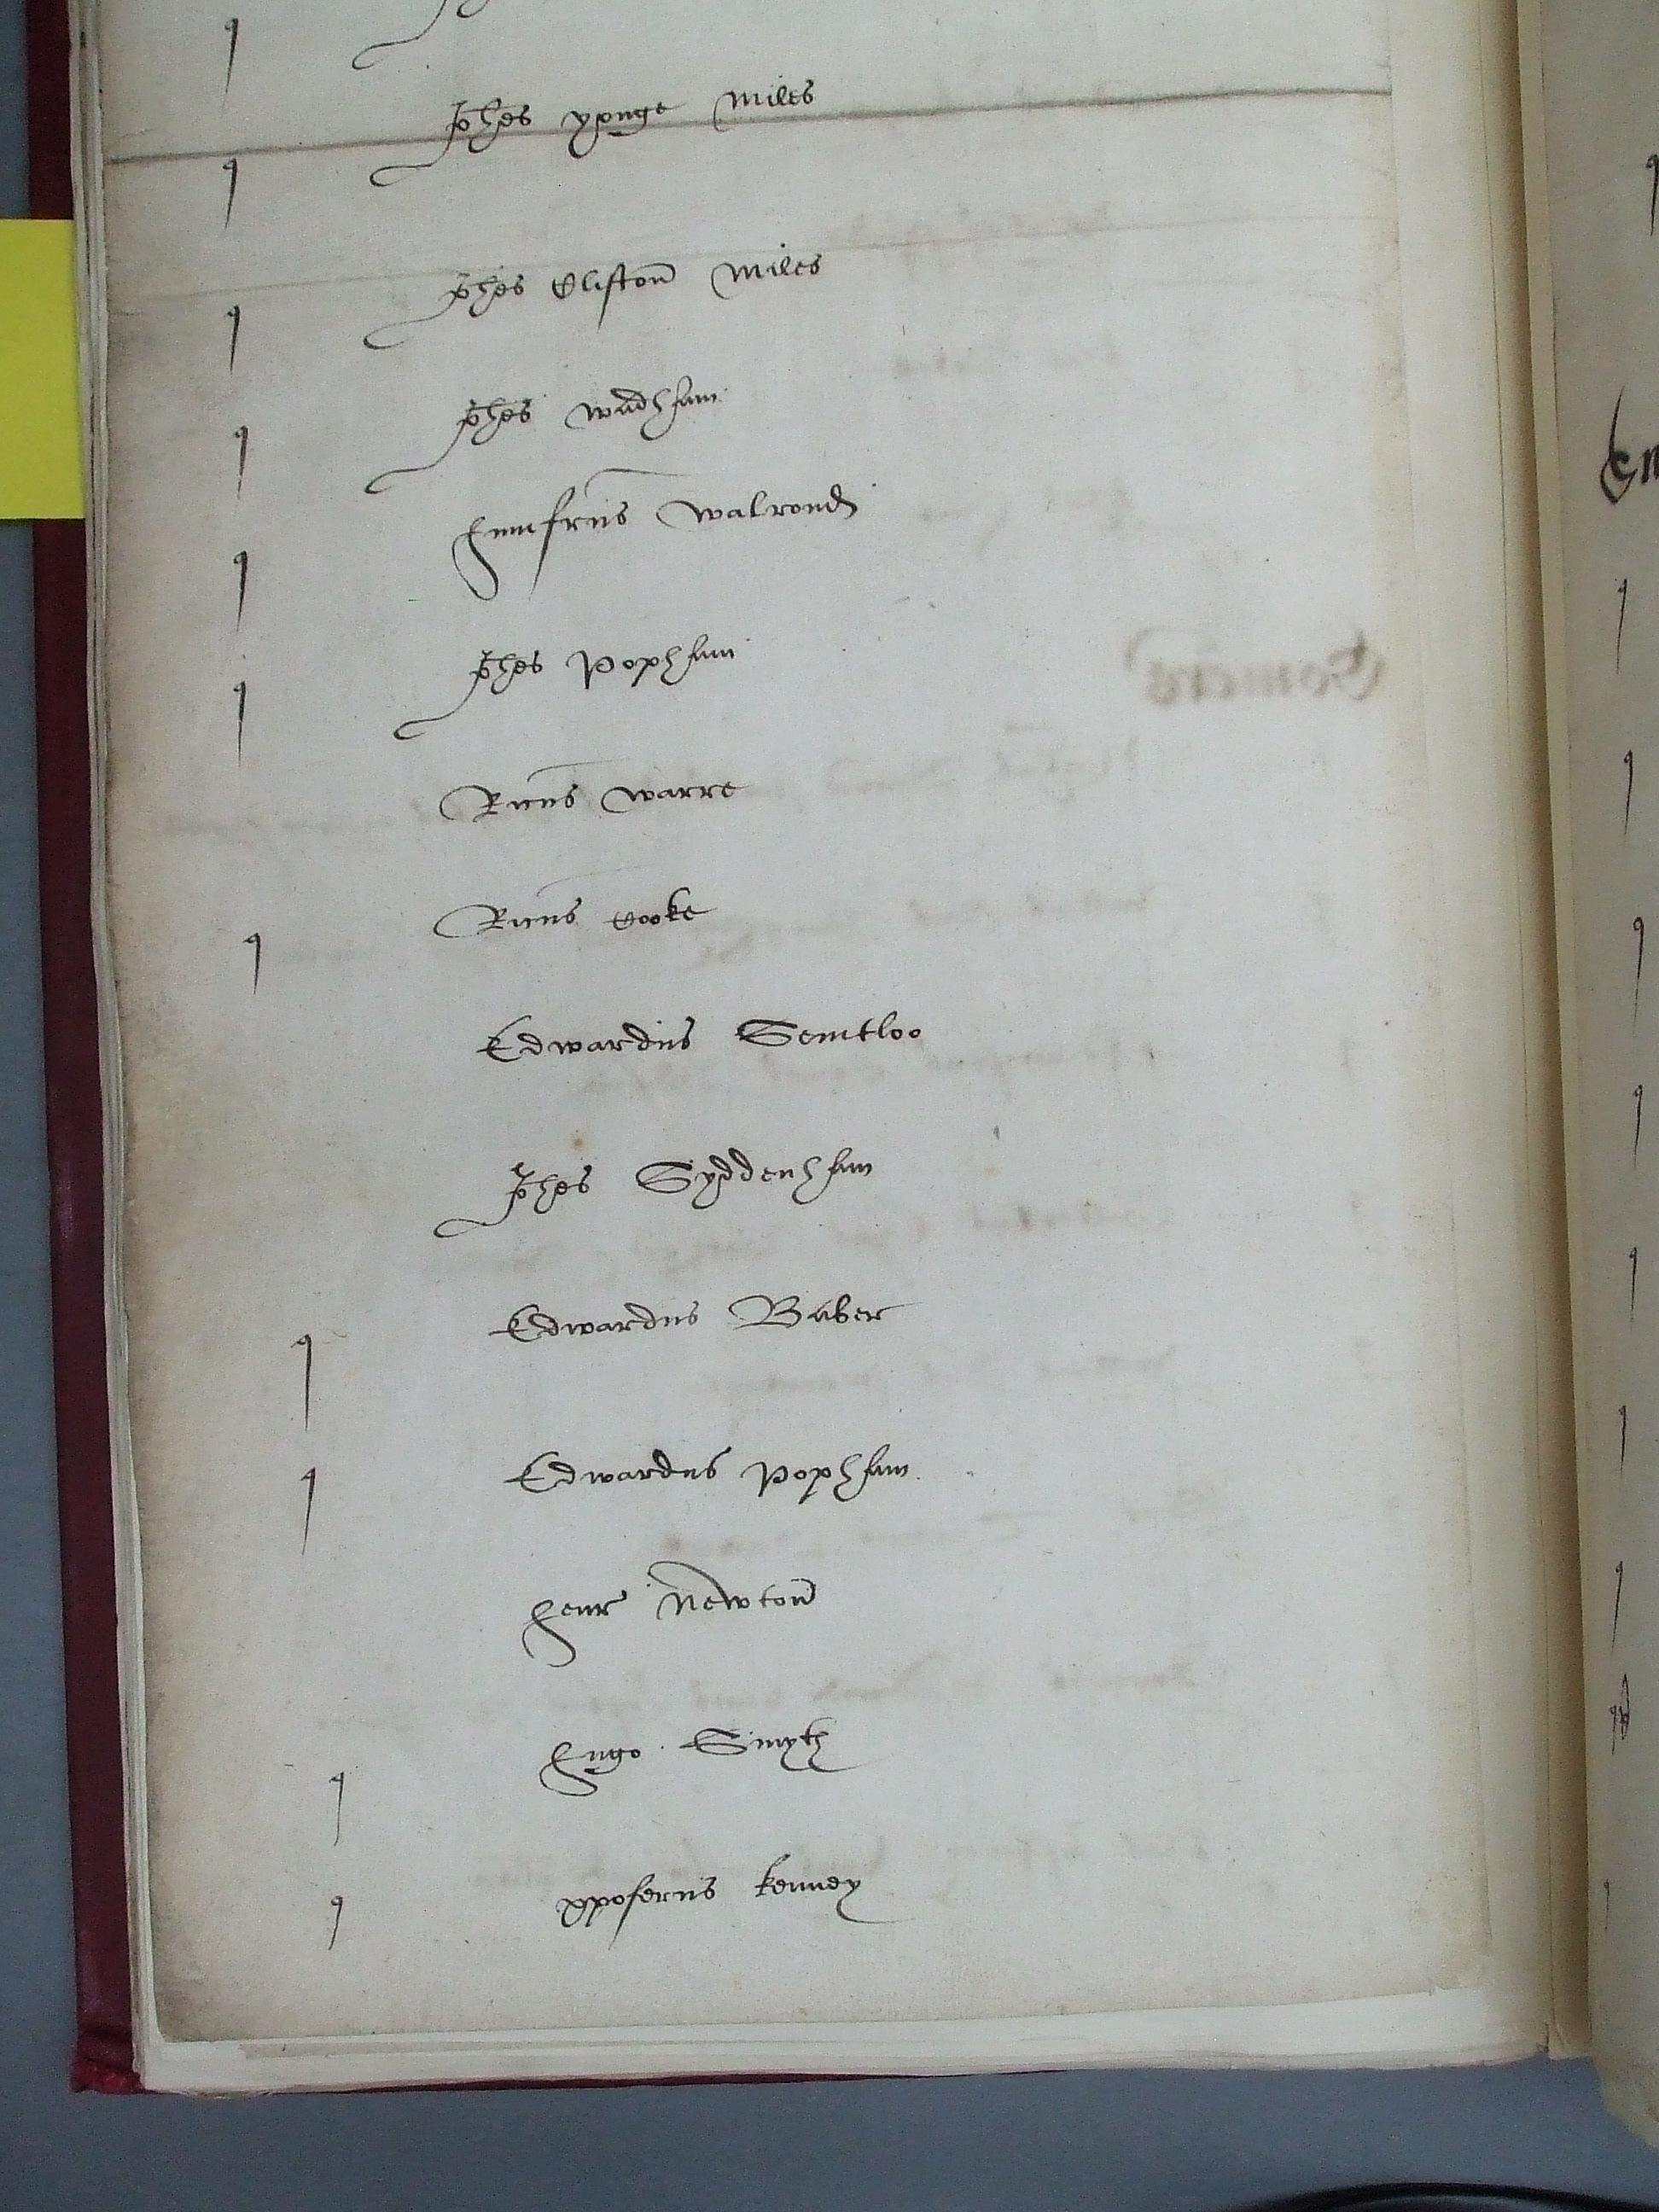 Johes yonge miles
Johes Clifton miles
Johes Wadham
Humfrus Walrond
Johes Popham
Ricus Warre
Ricus Cooke
Edwardus Semtloo
Johes Syddenham
Edwardus Baber
Edwardus Popham
Henr Newton
Hugo Smyth
Xpoferus Kenney